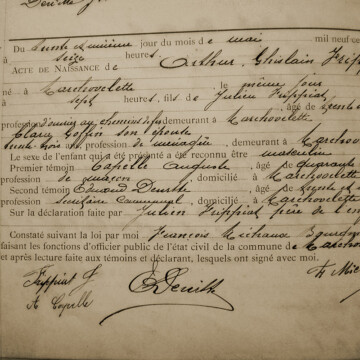 Du trente et unième jour du mois de mai mil neuf ce
seize heures
ACTE DE NAISSANCE de Arthur Ghislain Frippi
né à Marchovelette, le même jour
sept heures, fils de Julien Frippiat, âgé de
profession d'ouvrier au chemin de fer demeurant à Marchovelette
Claire son épouse
trente trois de profession de ménagère, demeurant à Marchovelette
Le sexe de l'enfant qui a été présenté a été reconnu être masculin
Premier témoin Capelle Auguste, âgé de quarante
profession de maçon, domicilié à Marchovelette
Second témoin Edouard Denith, âgé de
profession secrétaire communal, domicilié à Marchovelette
Sur la déclaration faite par Julien Frippiat père de l'en
Constaté suivant la loi par moi François Michaux Bourgm
faisant les fonctions d'officier public de l'état civil de la commune de Marchov
et après lecture faite aux témoins et déclarant, lesquels ont signé avec moi.
Frippiat J
A Capelle
EDenith
Fs Mic